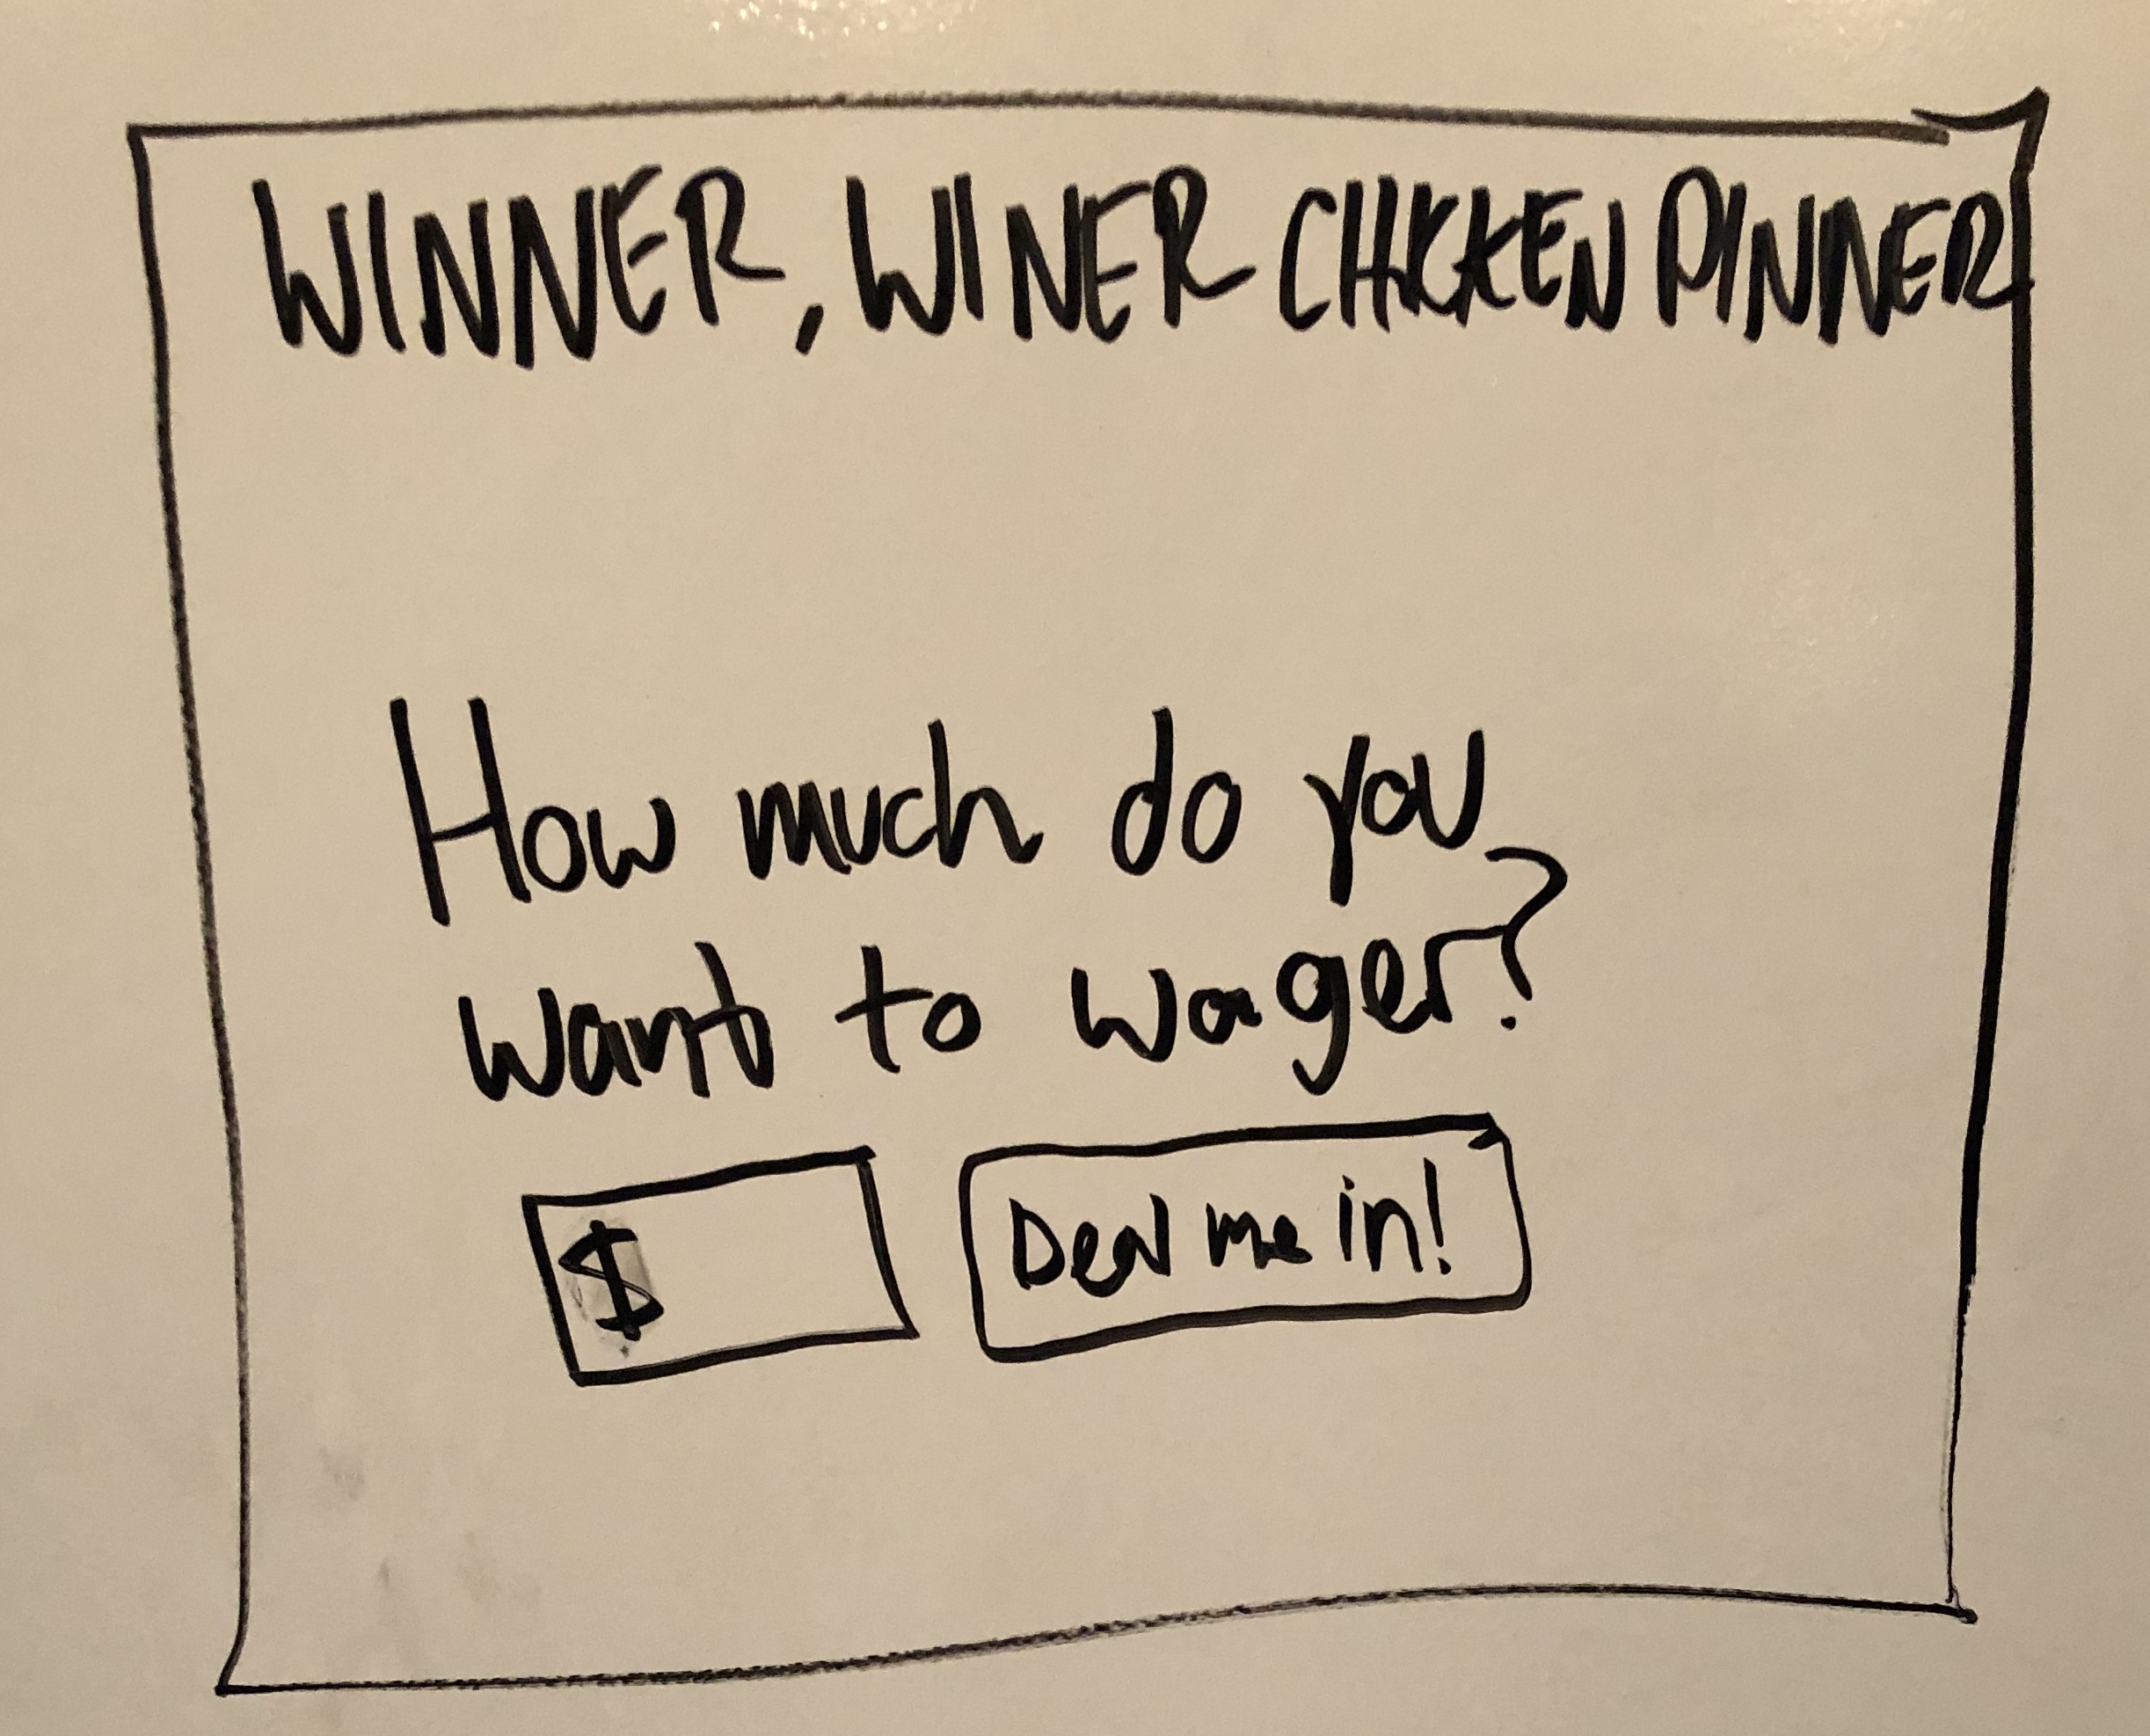 WINNER, WINER CHICKEN DINNER
How much do you
want to wager?
$
Deal me in!